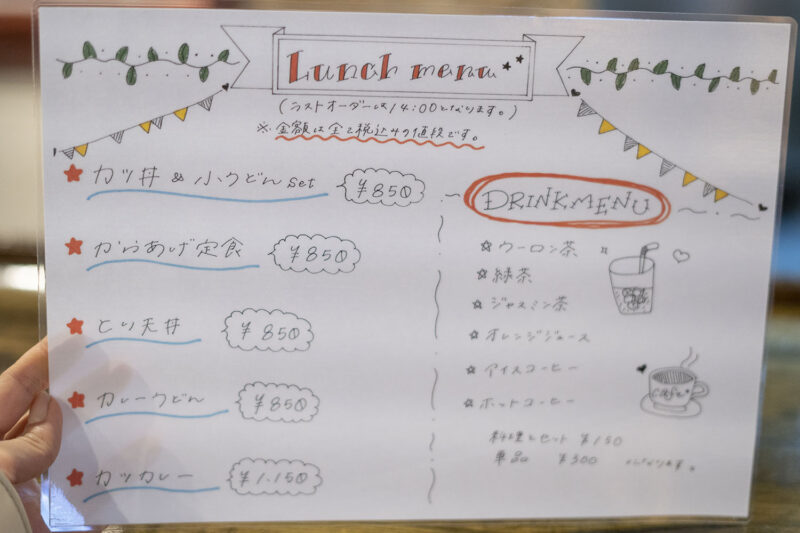 Lunch menu
(ラストオーダーは14:00となります。)
※金額は全て税込みの値段です。
カツ丼 & 小うどん set ¥850
からあげ定食 ¥850
とり天丼 ¥850
カレーうどん ¥850
カツカレー ¥1.150
DRINKMENU
ウーロン茶
緑茶
ジャスミン茶
オレンジジュース
アイスコーヒー
ホットコーヒー
cafe
料理とセット ¥150
単品 ¥300 になります。